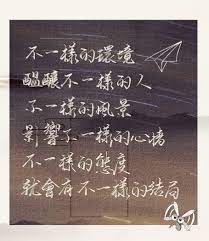 不一樣的環境
醞釀不一樣的人
不一樣的風景
影響不一樣的心牆
不一樣的態度
就會有不一樣的結局